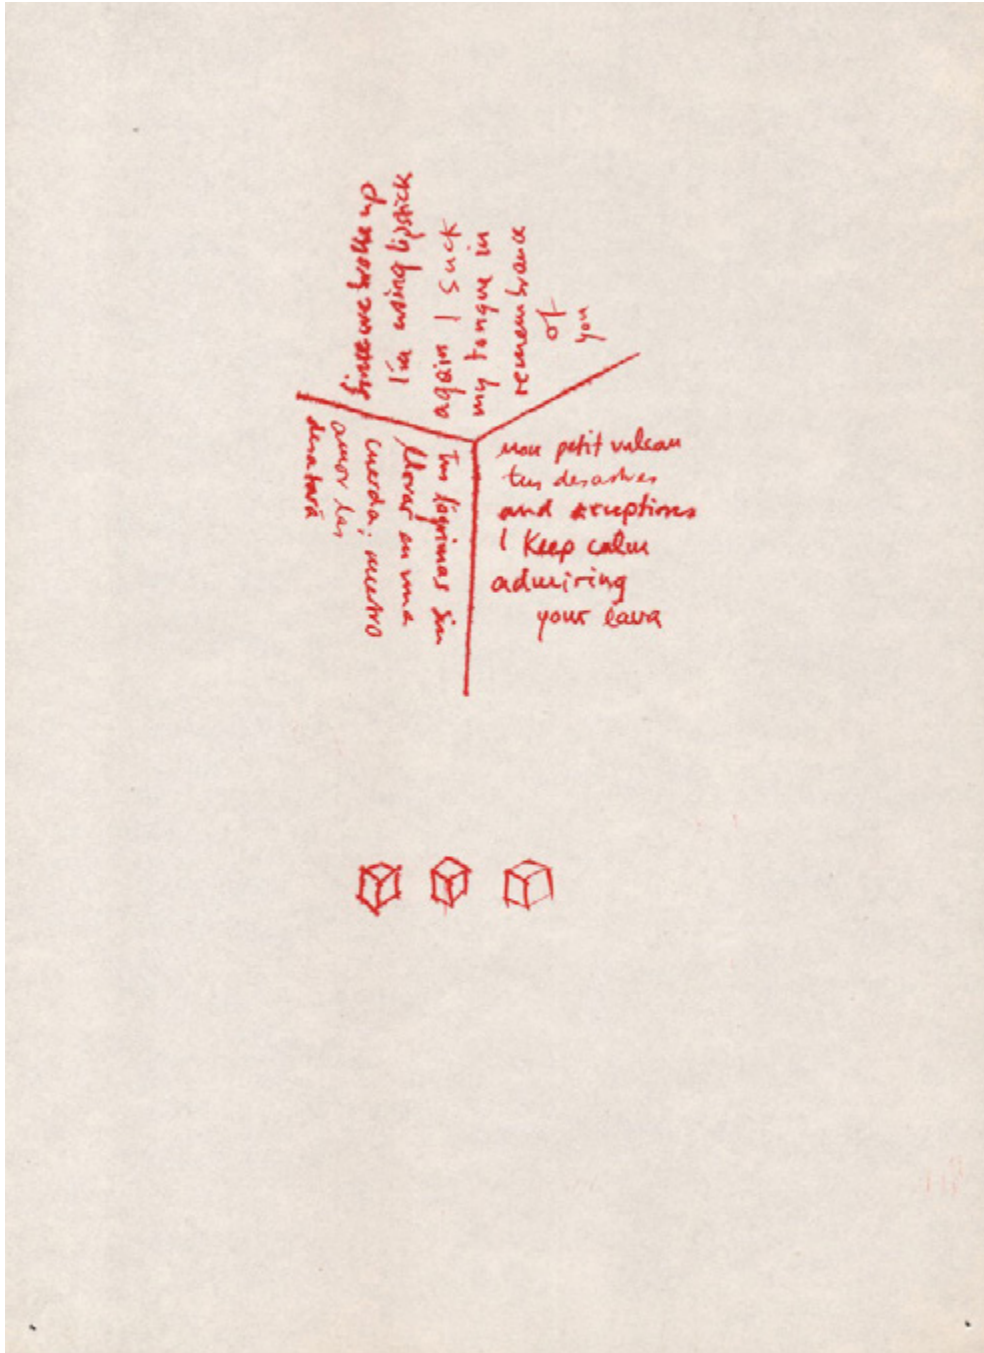 Since we broke up
I'm using lipstick
again I suck
my tongue in
remembrance
of
you
mon petit vulcan
tus desastres
and eruptions
I keep calm
admiring
your lava
Tus lágrimas sin
llorar en una
cuerda; nuestro
amor las
desatará